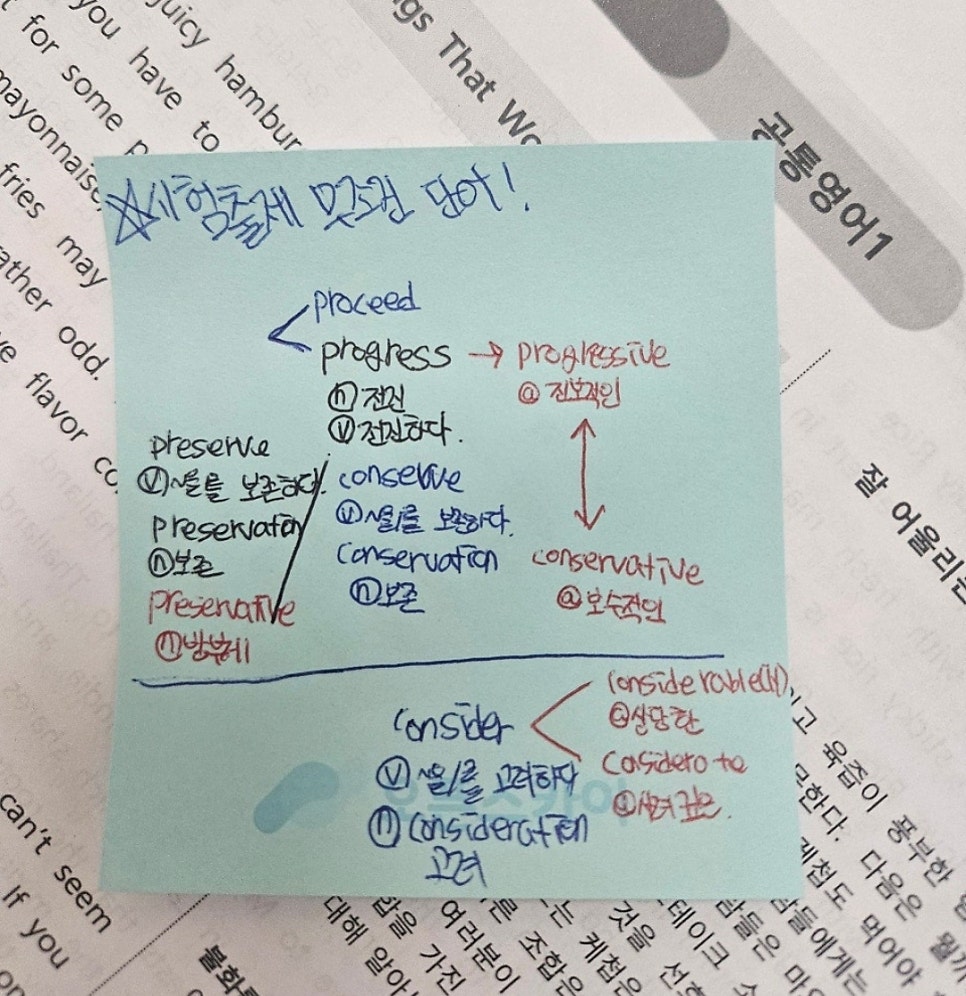 ☆시험출제 무조건 단어!
proceed
progress → progressive
ⓝ 전진
ⓐ 진보적인
ⓥ 전진하다.
preserve
ⓥ ~을/를 보존하다.
preservation
ⓝ 보존
preservative
ⓝ 방부제
conserve
ⓥ ~을/를 보존하다.
conservation
ⓝ 보존
conservative
ⓐ 보수적인
consider
ⓥ ~을/를 고려하다
ⓝ consideration
고려
considerable(ly)
ⓐ 상당한
considerate
ⓐ 사려 깊은.
juicy hambur
you have to
for some p
mayonnaise,
fries may
rather odd.
flavor co
ngs That Wo
공통영어1
잘 어울리는
can't seem
If you
불화
대해 알아
감을 가진
여러분이
조합은
케첩은
것을 선호
스테이크 소
이고 육즙이 풍부한
못한다. 다음은 뭘까
케첩도 먹어야